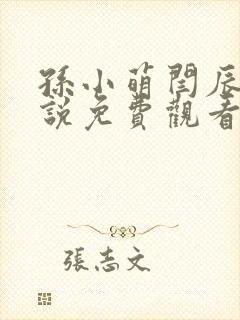 孫小萌閆辰
說免費觀看
張志文